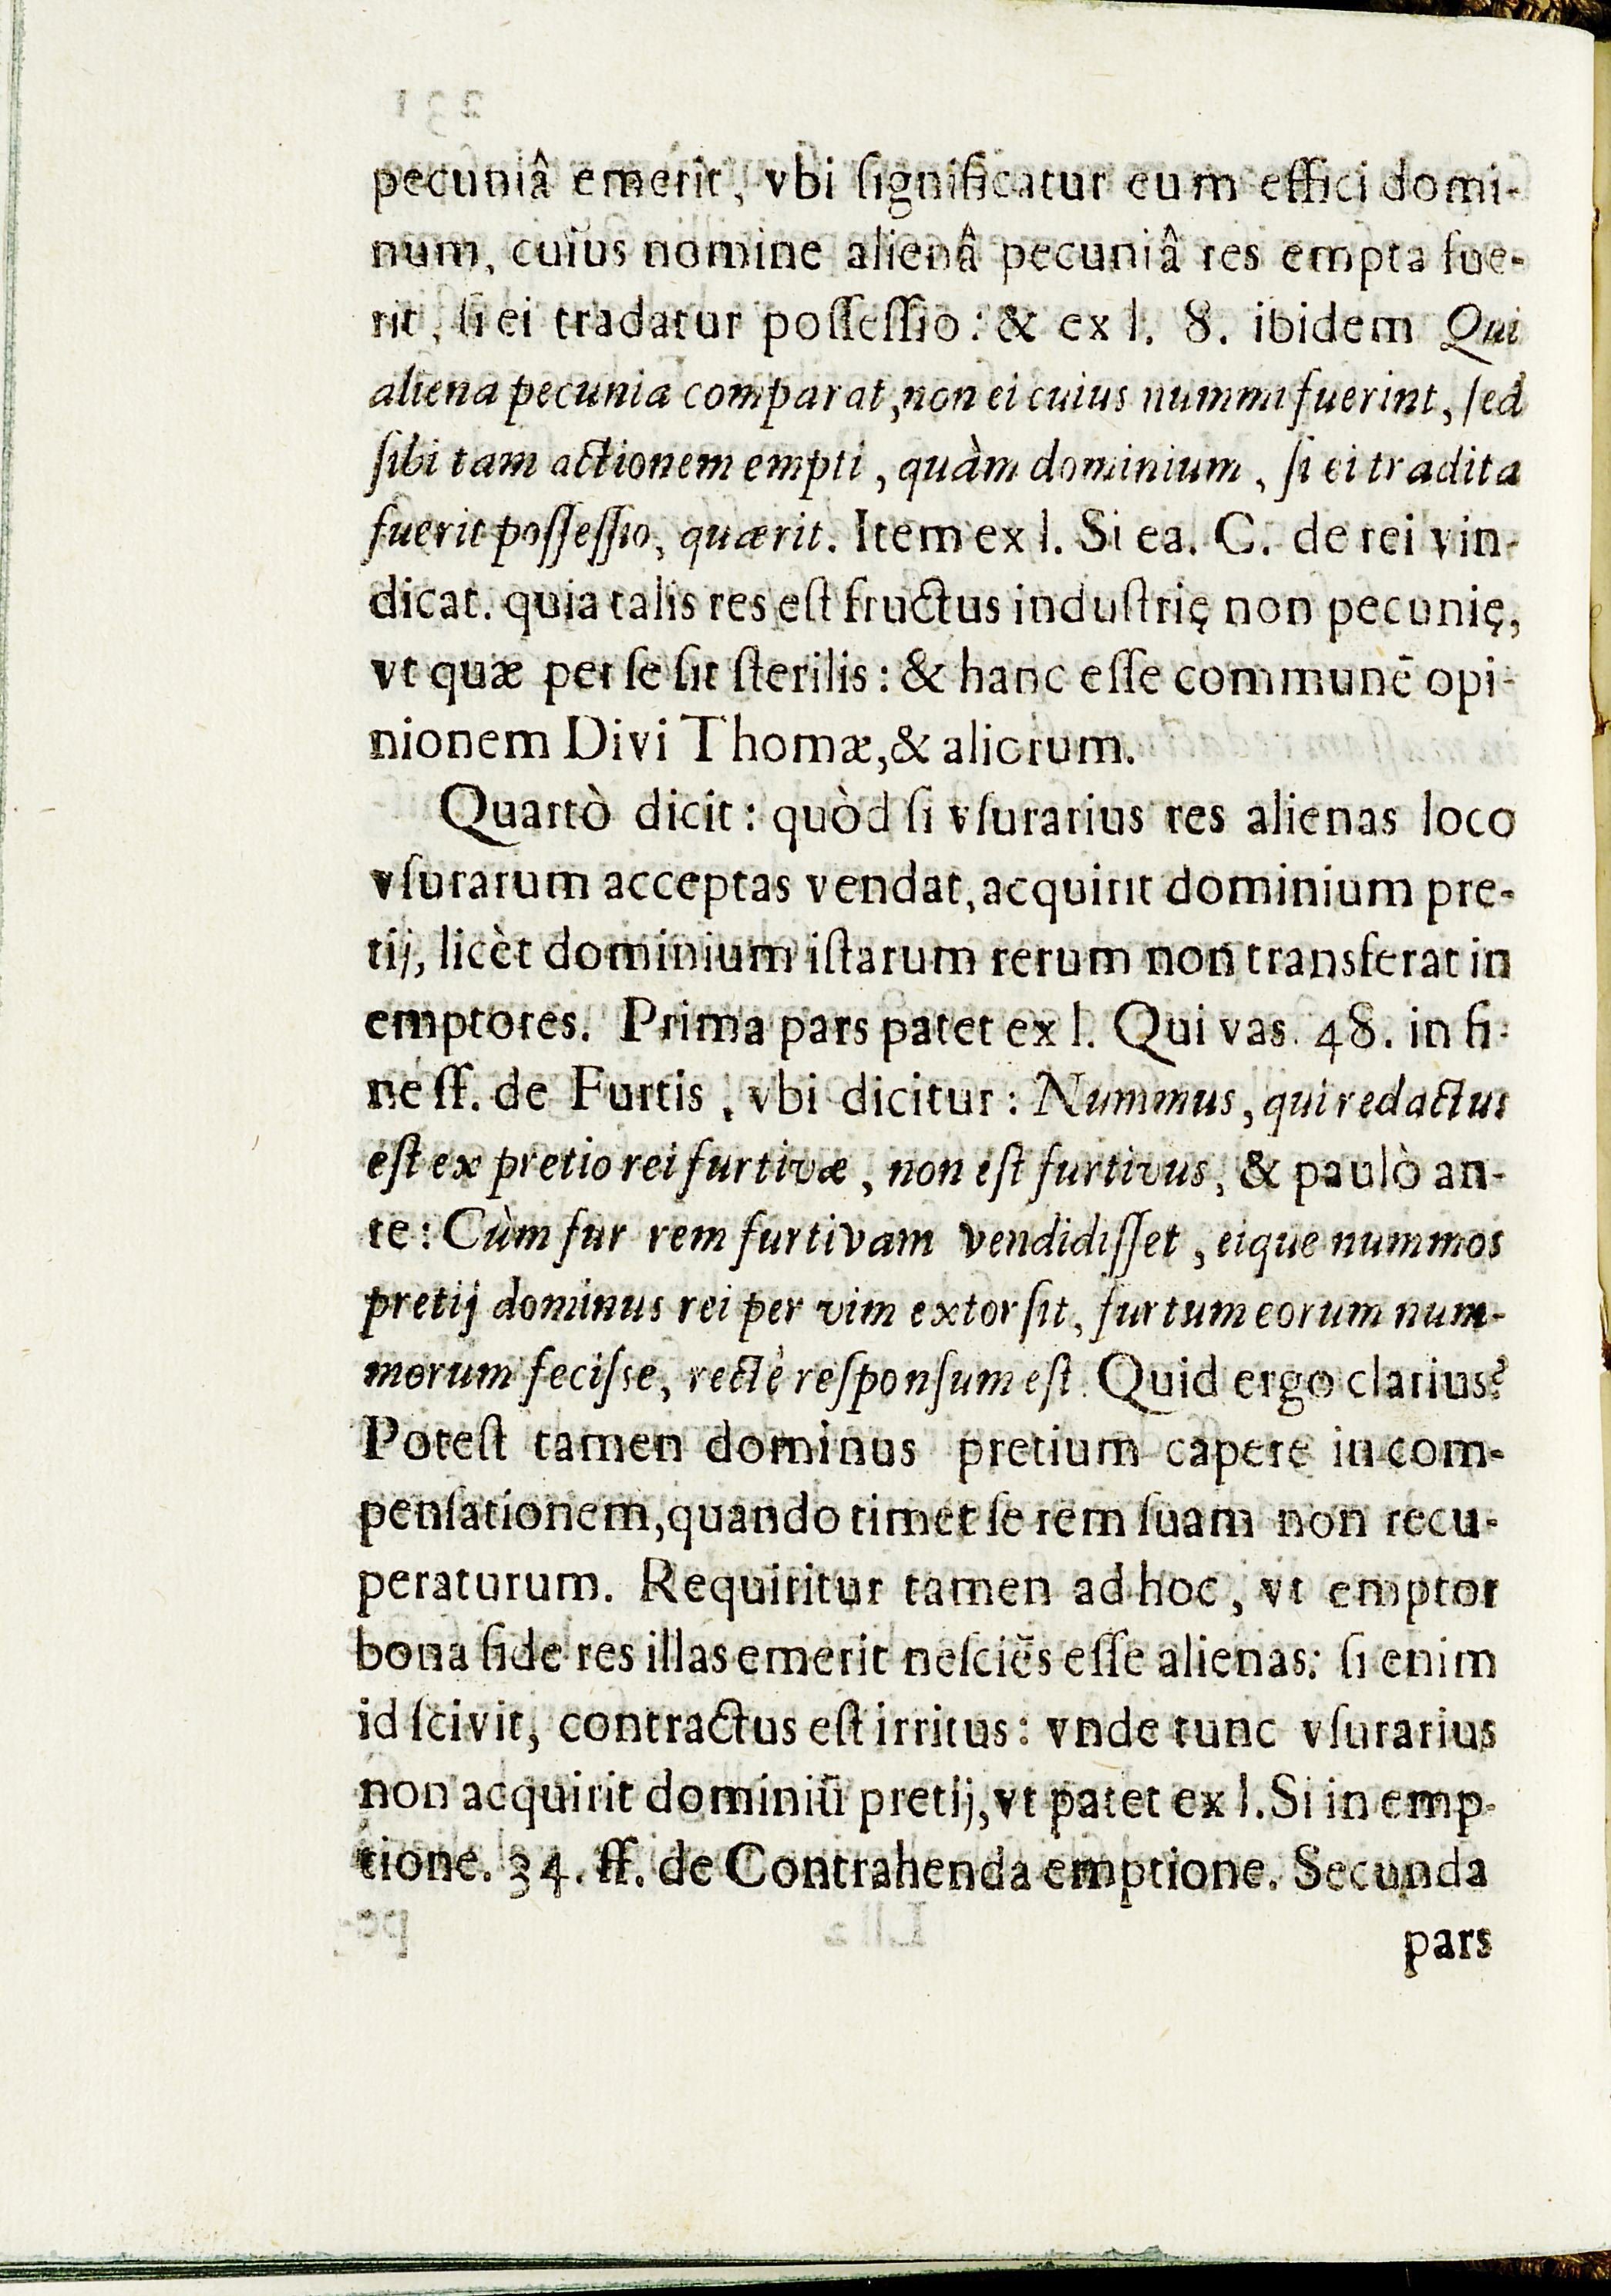 pecuniâ emerit, vbi ſignificatur eum effici domi-
num, cuius nomine alienâ pecuniâ res empta fue-
rit, ſi ei tradatur poſſeſſio: & ex l. 8. ibidem Qui
aliena pecunia comparat, non ei cuius nummi fuerint, ſed
ſibi tam actionem empti, quàm dominium, ſi ei tradita
fuerit poſſeſſio, quærit. Item ex l. Si ea. C. de rei vin-
dicat. quia talis res eſt fructus induſtrię non pecunię,
vt quæ per ſe ſit ſterilis: & hanc eſſe communē opi-
nionem Divi Thomæ, & aliorum.
Quartò dicit: quòd ſi vſurarius res alienas loco
vſurarum acceptas vendat, acquirit dominium pre-
tij, licèt dominium iſtarum rerum non transferat in
emptores. Prima pars patet ex l. Qui vas. 48. in fi-
ne ff. de Furtis, vbi dicitur: Nummus, qui redactus
eſt ex pretio rei furtivæ, non eſt furtivus, & paulò an-
te: Cùm fur rem furtivam vendidiſſet, eique nummos
pretij dominus rei per vim extorſit, furtum eorum num-
morum feciſse, rectè reſponſum eſt. Quid ergo clarius?
Poteſt tamen dominus pretium capere in com-
penſationem, quando timet ſe rem ſuam non recu-
peraturum. Requiritur tamen ad hoc, vt emptor
bona fide res illas emerit neſciēs eſſe alienas: ſi enim
id ſcivit, contractus eſt irritus: vnde tunc vſurarius
non acquirit dominiū pretij, vt patet ex l. Si in emp-
tione. 34. ff. de Contrahenda emptione. Secunda
pars